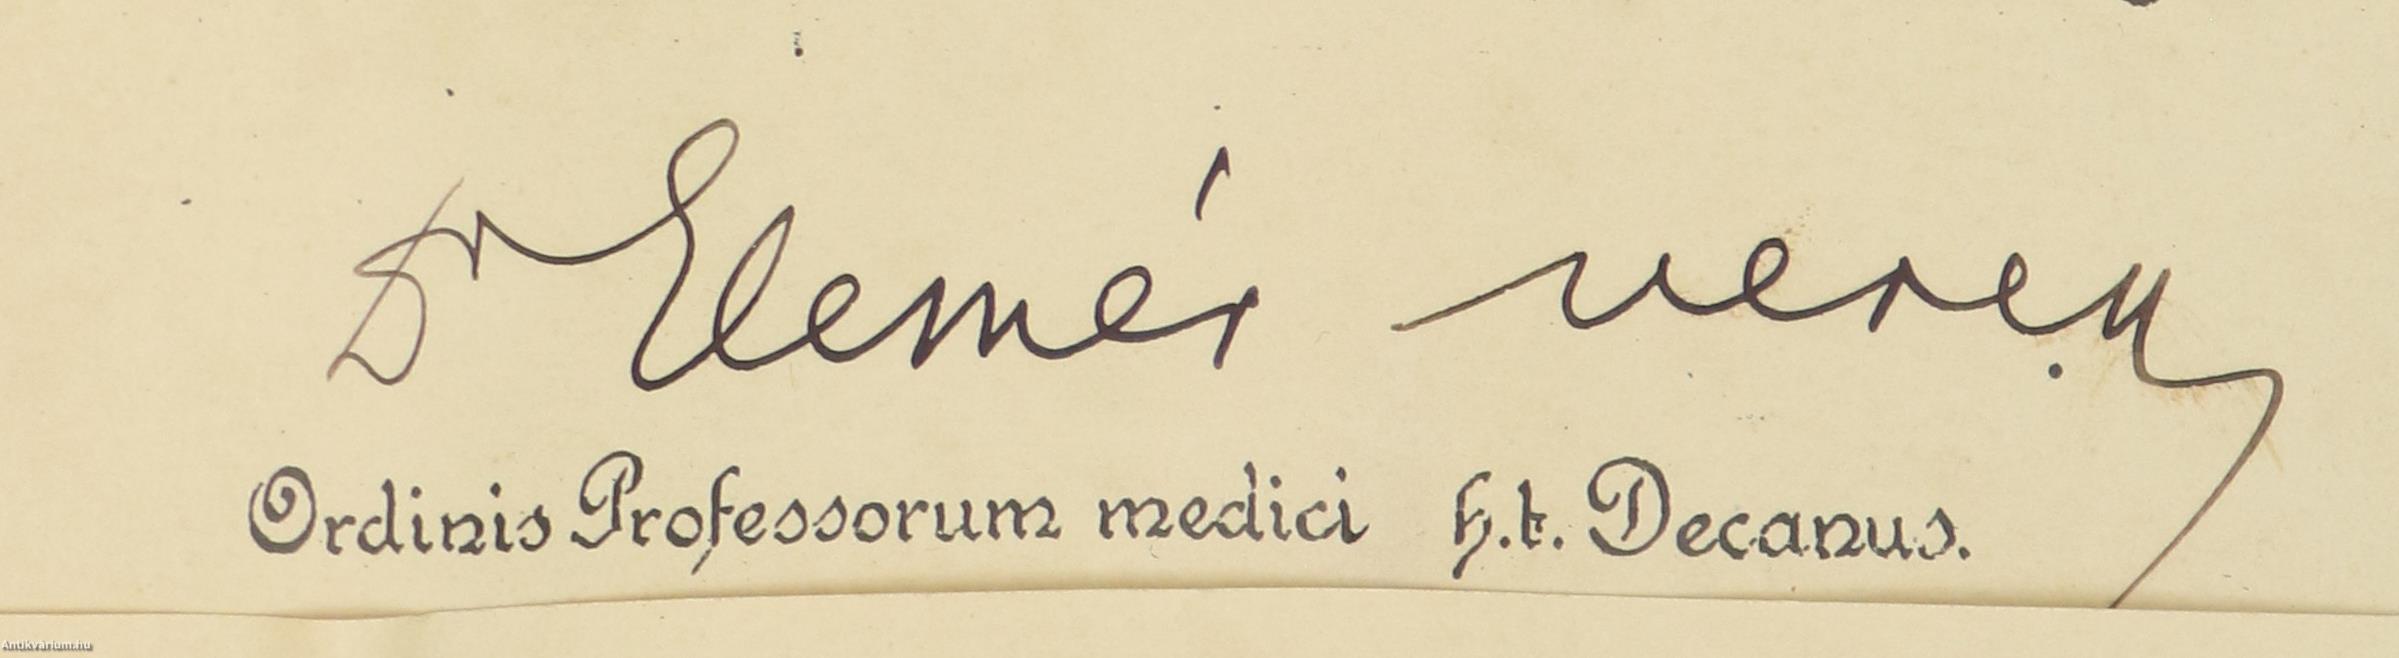 Dr Elemér Vereß
Ordinis Professorum medici h.t. Decanus.
Antikvárium.hu